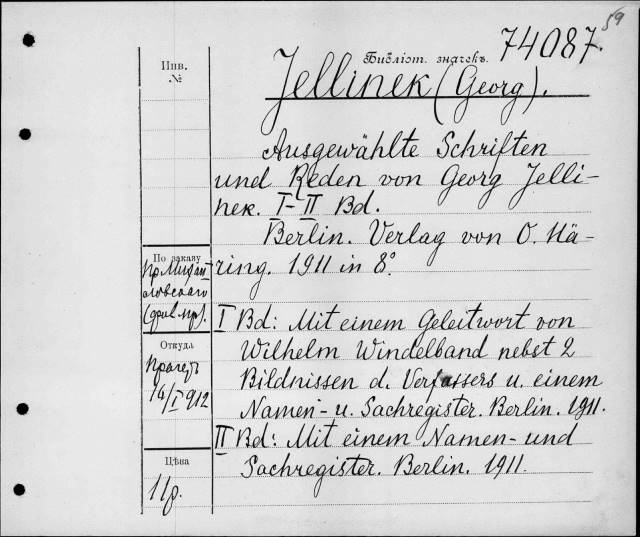 59
Инв.
№
Библіот. значекъ.
74087.
Jellinek (Georg).
Ausgewählte Schriften
und Reden von Georg Jelli-
nek. I-II Bd.
Berlin. Verlag von O. Hä-
ring. 1911 in 8°.
По заказу
I Bd: Mit einem Geleitwort von
Wilhelm Windelband nebst 2
Bildnissen d. Verfassers u. einem
Namen- u. Sachregister. Berlin. 1911.
II Bd: Mit einem Namen- und
Sachregister. Berlin. 1911.
Откуда
14/I 912
Цѣна
11р.